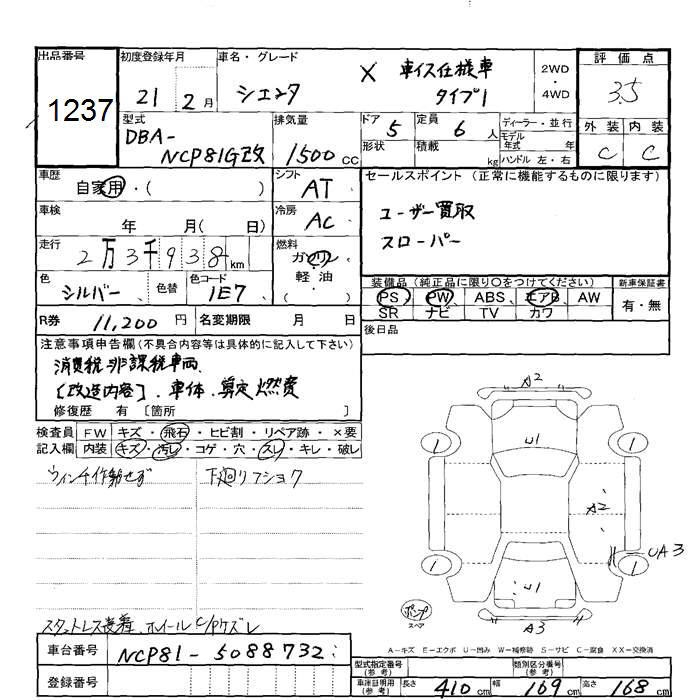 出品番号
1237
初度登録年月
21 2月
車名・グレード
シエンタ X 車イス仕様車
タイプ1
2WD
4WD
評価点
3.5
外装 内装
C C
型式
DBA-
NCP81G改
排気量
1500 CC
ドア 5
形状
定員 6 人
積載 kg
ディーラー・並行
モデル年式 年
ハンドル 左・右
車歴
自家用・( )
シフト
AT
車検
年 月( 日)
冷房
AC
走行
2万3千938km
燃料
ガソリン
軽油・
( )
色
シルバー
色替
色コード
1E7
R券 11,200円
名変期限 月 日
セールスポイント(正常に機能するものに限ります)
ユーザー買取
スローパー
装備品(純正品に限り○をつけてください)
PS、PW、ABS、エアB、AW
SR ナビ TV カワ
新車保証書
有・無
後日品
注意事項申告欄(不具合内容等は具体的に記入して下さい)
消費税非課税車両
[改造内容]. 車体. 算定燃費
修復歴 有 [箇所 ]
検査員
記入欄
FW キズ・飛石・ヒビ割・リペア跡・×要
内装 キズ・汚レ・コゲ・穴・スレ・キレ・破レ
ウィンチ作動せず
下廻りフショク
スタットレス装着、ホイールC/Pケズレ
A2
U1
1
1
A2
UA3
1
1
U1
ポンプ
スペア
A3
A-キズ E-エクボ U-凹み W-補修跡 S-サビ C-腐食 XX-交換済
車台番号
NCP81-5088732
登録番号
型式指定番号
(参考)
類別区分番号
(参考)
車庫証明用
(参考)
長さ 410cm 幅 169cm 高さ 168cm